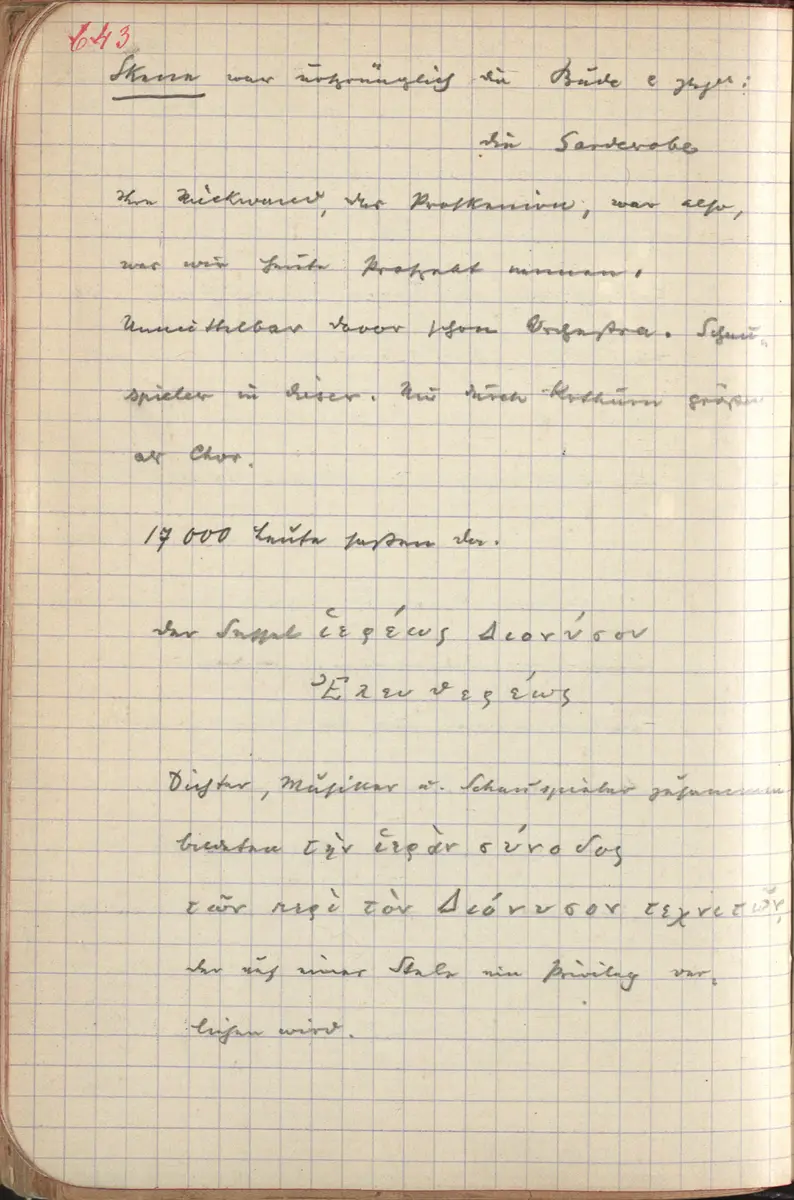 643
Skene war ursprünglich die Bude
die Garderobe
Ihre Rückwand, das Proskenion, war also,
was wir heute Prospekt nennen.
Unmittelbar davor schon Orchestra. Schau-
spieler in dieser. Nur durch Kothurn größer
als Chor.
17 000 Leute saßen da.
Der Sessel ἱερέως Διονύσου
Ἐλευθερέως
Dichter, Musiker u. Schauspieler zusammen
bildeten τὴν ἱερὰν σύνοδος
τῶν περὶ τὸν Διόνυσον τεχνιτῶν,
der auf einer Stele ein Privileg ver-
liehen wird.